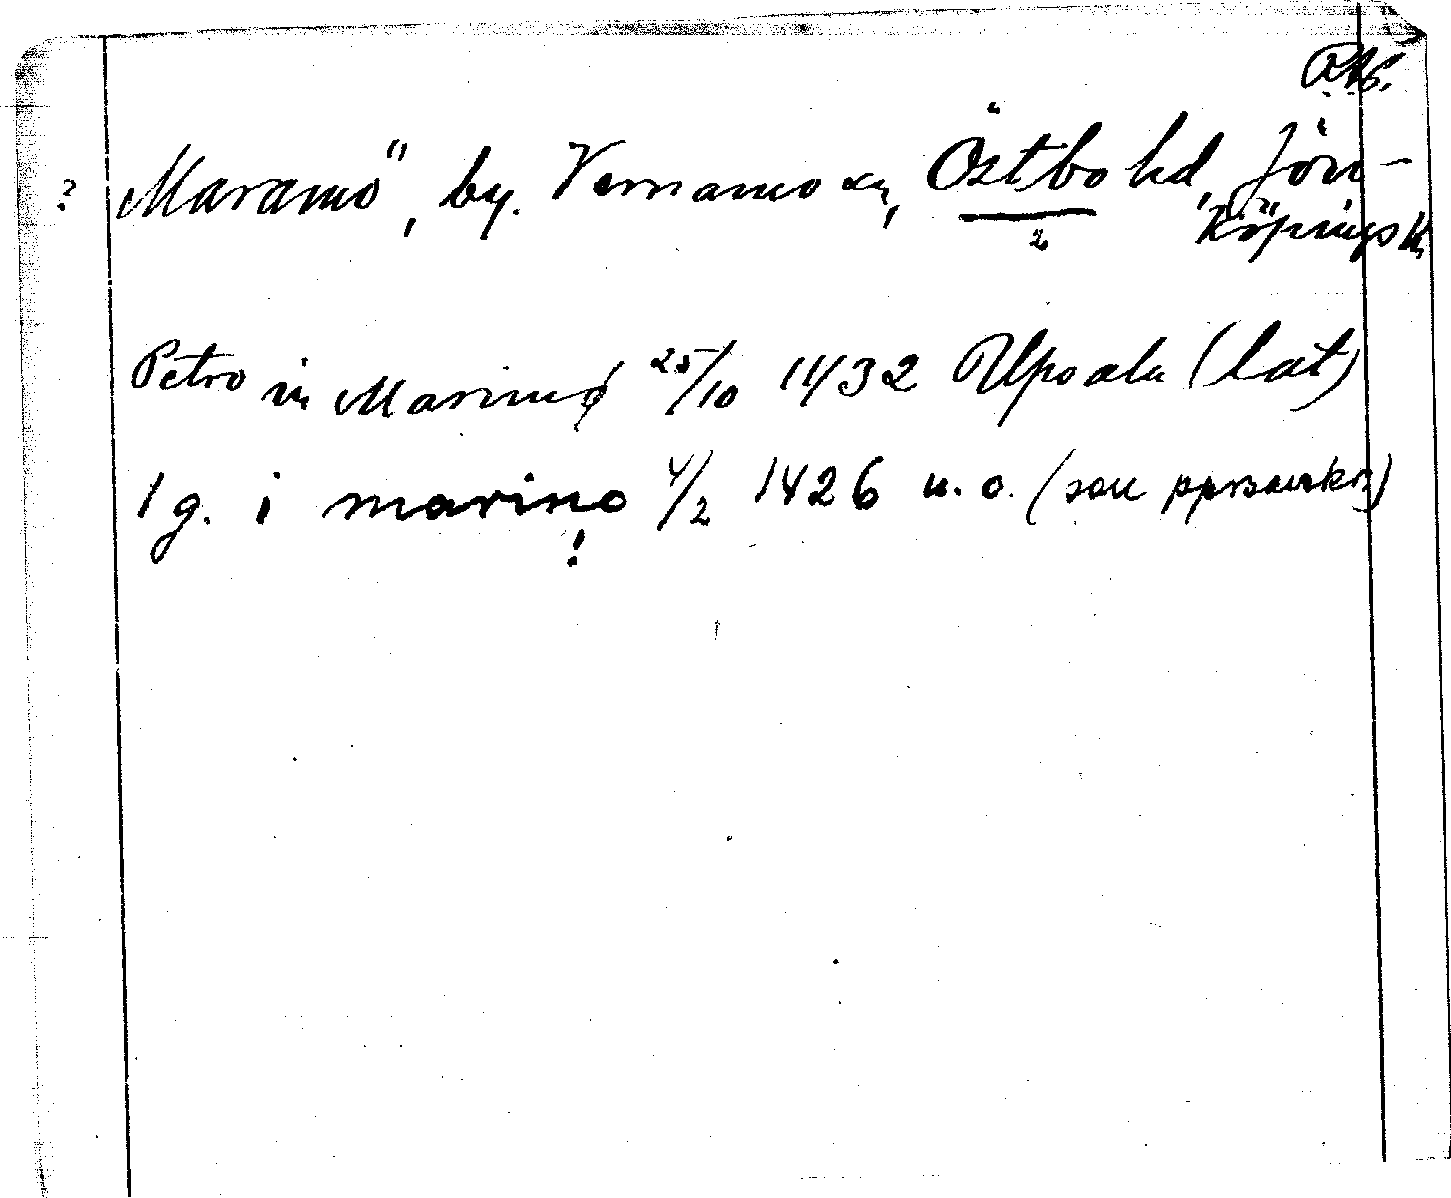 R.A.
? Maramö, by. Vernamo sn, Östbo hd, Jön-
2 köpings l.
Petro in Marinnø 25/10 1432 Upsala (lat)
1 g. i marino 4/2 1426 u. o. (sou pprsavskr.)
!